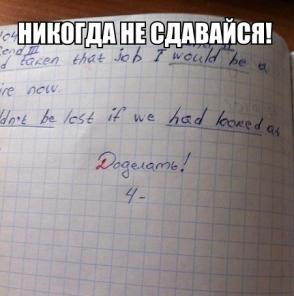 НИКОГДА НЕ СДАВАЙСЯ!
taken that job I would be a
now.
be lost if we had looked at
Доделать!
4-